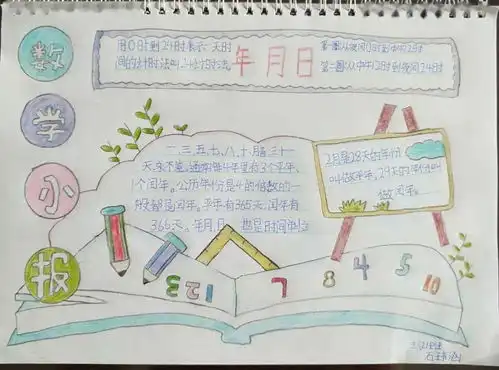 数
学
小
报
用0时到24时表示一天时
间的计时法叫24时计时法。
年月日
第一圈从夜间0时到中午12时
第二圈从中午12时到夜间24时
一、三、五、七、八、十、腊三十一
天永不差,通常每4年里有3个平年、
1个闰年。公历年份是4的倍数的一
般都是闰年。平年有365天,闰年有
366天。年、月、日 都是时间单位
2月是28天的年份
叫做平年,29天的年份叫
做闰年。
123
7
8
4
5
10